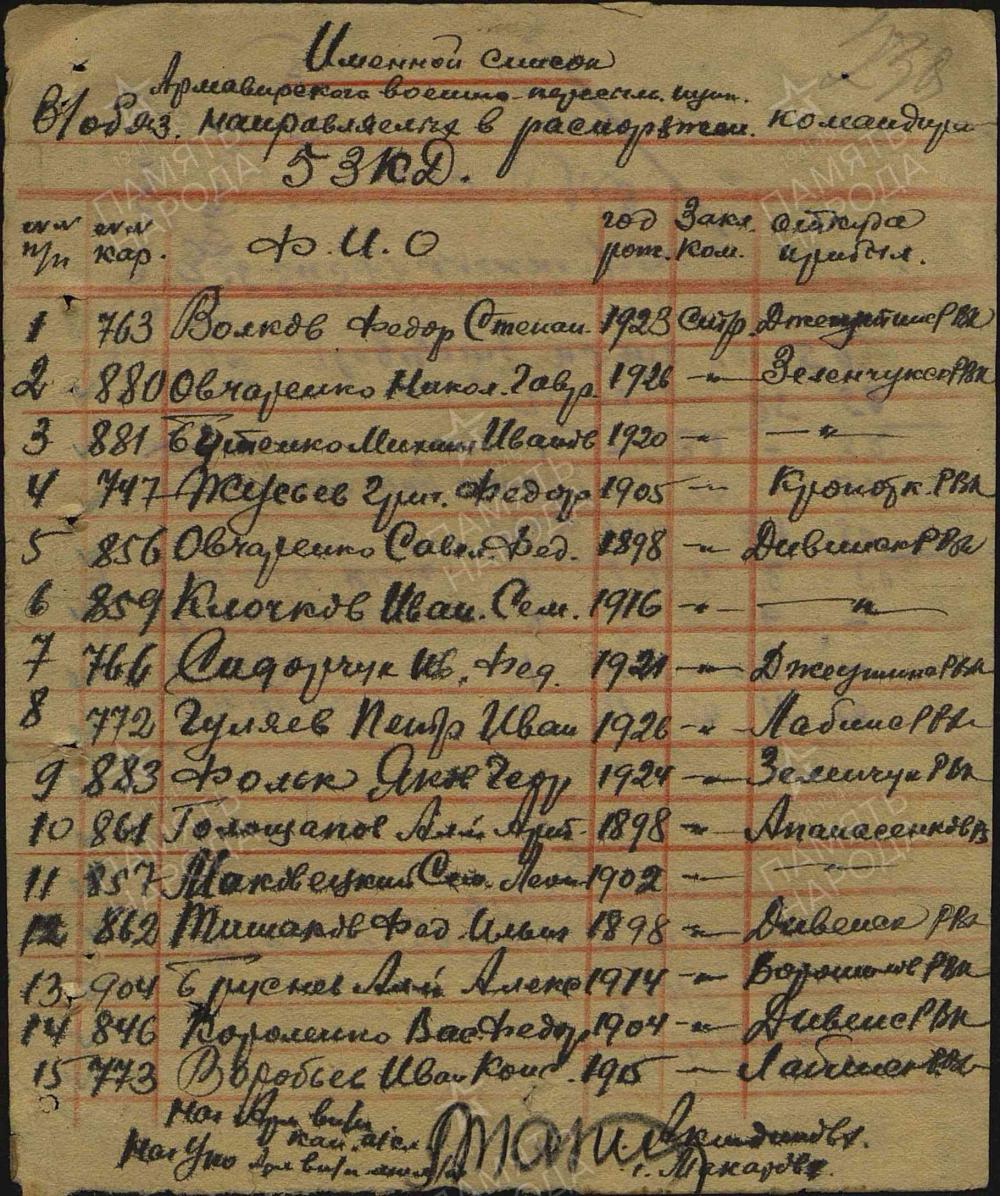 138
Именной список
Армавирского военно-пересыльн. пун.
в/обяз. направляемых в распоряжен. командира
53 КД.
№№ п/п №№ кар. Ф. И. О год рож. Закл. Ком. откуда прибыл.
1 763 Волков Федор Степан. 1923 Стр.
2 880 Овчаренко Никол. Гавр. 1926 -"- Зеленчукск РВК
3 881 Бутенко Михаил Иванов 1920 -"- -"-
4 747 Жусьев Григ. Федор 1905 -"- Кропотк. РВК
5 856 Овчаренко Савел. Фед. 1898 -"- Дивинск РВК
6 859 Клочков Иван. Сем. 1916 -"- -"-
7 766 Сидорчук Ив. Фед. 1921 -"-
8 772 Гуляев Петр Иван 1926 -"- Лабинс РВК
9 883 Фольк Яков 1924 -"- Зеленчук РВК
10 861 Голощапов 1898 -"- Апанасенков
11 857 Маковецкий Сем. Леон 1902 -"- -"-
12 862 Тишаков Фед. Ильич 1898 -"- Дивенск РВК
13 904 Бруснев Алекс 1914 -"- Ворошилов РВК
14 846 Короленко Вас. Федор 1904 -"- Дивенс РВК
15 773 Воробьев Иван Конс. 1915 -"- Лабинск РВК
Нач. Арм. в/п
кап. Акиндинов
Нач Уко Арм в/п Макаров
ПАМЯТЬ НАРОДА